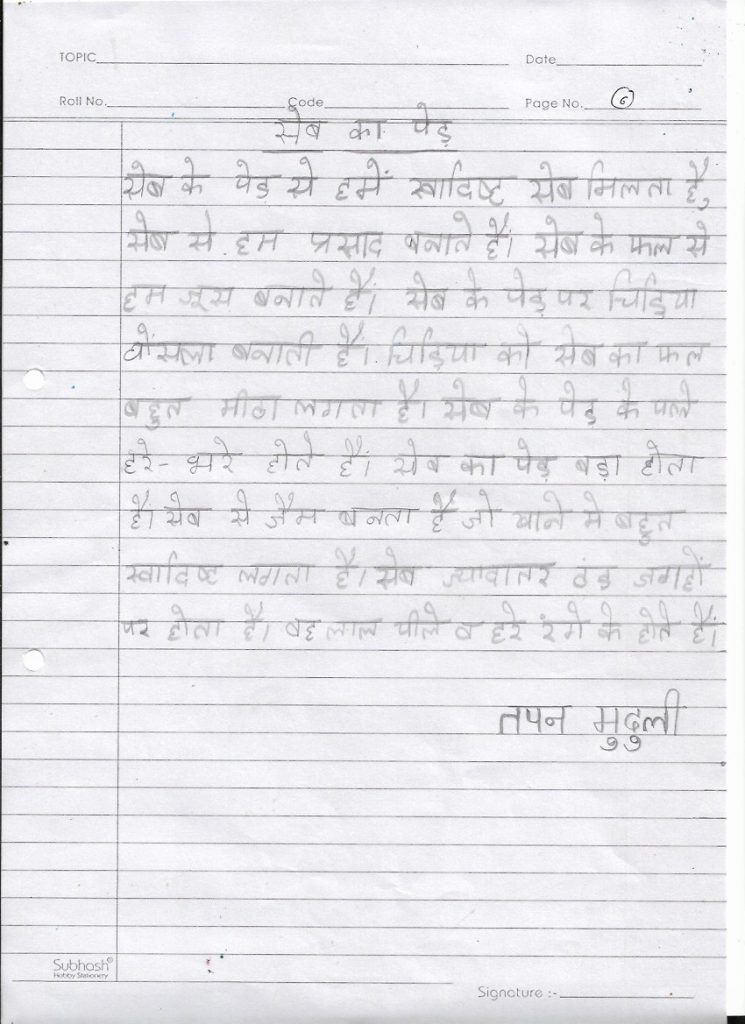 TOPIC
Date
Roll No.
Code
Page No. ६
सेब का पेड़
सेब के पेड़ से हमें स्वादिष्ट सेब मिलता है,
सेब से हम प्रसाद बनाते हैं। सेब के फल से
हम जूस बनाते हैं। सेब के पेड़ पर चिड़िया
घोंसला बनाती हैं। चिड़िया को सेब का फल
बहुत मीठा लगता है। सेब के पेड़ के पत्ते
हरे-भरे होते हैं। सेब का पेड़ बड़ा होता
है। सेब से जैम बनता है जो खाने मे बहुत
स्वादिष्ट लगता है। सेब ज्यादातर ठंड जगहों
पर होता है। वह लाल पीले व हरे रंगे के होते हैं।
तपन मुदुली
Subhash
Hobby Stationery
Signature :-